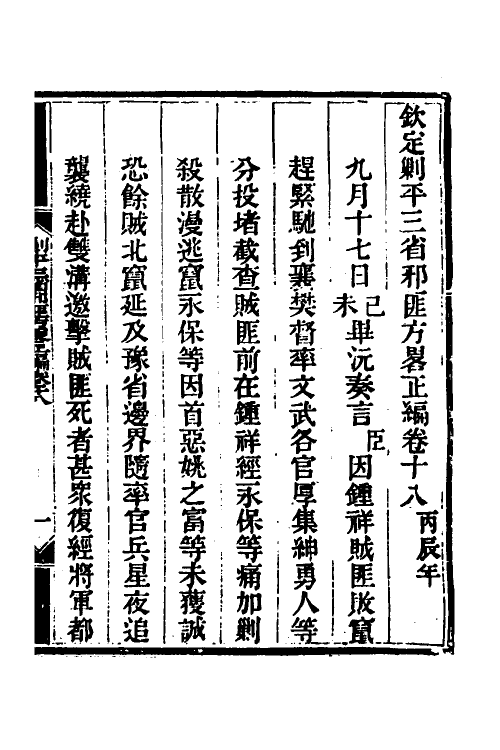 欽定剿平三省邪匪方畧正編卷十八 丙辰年
九月十七日己未畢沅奏言臣因鍾祥賊匪敗竄
趕緊馳到襄樊督率文武各官厚集紳勇人等
分投堵截查賊匪前在鍾祥經永保等痛加剿
殺散漫逃竄永保等因首惡姚之富等未獲誠
恐餘賊北竄延及豫省邊界隨率官兵星夜追
襲繞赴雙溝邀擊賊匪死者甚衆復經將軍都
一